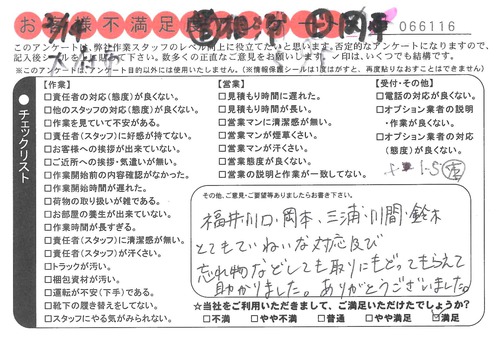 お 様不満足度 066116
このアンケートは、弊社作業スタッフのレベル向上に役立てたいと思います。否定的なアンケートになりますので、
記入後シールを 数多くの正直なご意見をお願いします。✓印は、いくつでも結構です。
※このアンケートは、アンケート目的以外には使用いたしません。(※情報保護シールは1度はがすと、再度貼りなおすことはできません)
●チェックリスト
【作業】
□責任者の対応(態度)が良くない。
□他のスタッフの対応(態度)が良くない。
□作業を見ていて不安がある。
□責任者(スタッフ)に好感が持てない。
□お客様への挨拶が出来ていない。
□ご近所への挨拶・気遣いが無い。
□作業開始前の内容確認がなかった。
□作業開始時間が遅れた。
□荷物の取り扱いが雑である。
□お部屋の養生が出来ていない。
□作業時間が長すぎる。
□責任者(スタッフ)に清潔感が無い。
□責任者(スタッフ)が汗くさい。
□トラックが汚い。
□梱包資材が汚い。
□運転が不安(下手)である。
□靴下の履き替えをしてない。
□スタッフにやる気がみられない。
【営業】
□見積もり時間に遅れた。
□見積もり時間が長い。
□営業マンに清潔感が無い。
□営業マンが煙草くさい。
□営業マンが汗くさい。
□営業態度が良くない。
□営業の説明と作業が一致してない。
【受付・その他】
□電話の対応が良くない。
□オプション業者の説明
・作業が良くない。
□オプション業者の対応
(態度)が良くない。
1.5
その他、ご意見・ご要望等ありましたらお書き下さい。
福井・川口・岡本、三浦・川間・鈴木
とてもていねいな対応及び
忘れ物などしても取りにもどってもらえて
助かりました。ありがとうございました。
☆当社をご利用いただきまして、ご満足いただけたでしょうか?
□不満 □やや不満 □普通 □やや満足 ☑満足